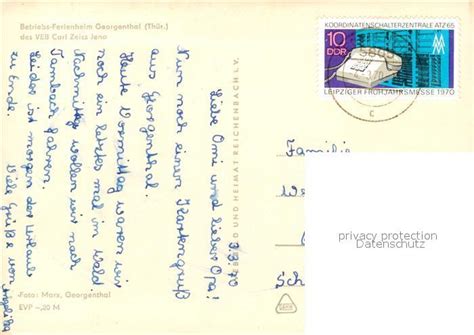 Betriebs-Ferienheim Georgenthal (Thür.)
des VEB Carl Zeiss Jena
3.8.70
Liebe Omi und lieber Opa!
Nun noch einen Kartengruß
aus Georgenthal.
Heute Vormittag waren wir
noch ein letztes mal im Wald
Nachmittag wollen wir nach
Tambach fahren.
Leider ist morgen der Urlaub
zu Ende.
Viele Grüße von
BILD UND HEIMAT REICHENBACH i. V.
Foto: Marx, Georgenthal
EVP -,20 M
KOORDINATENSCHALTERZENTRALE ATZ 65
10
DDR
MM
LEIPZIGER FRÜHJAHRSMESSE 1970
c
Familie
We
Sch
privacy protection
Datenschutz